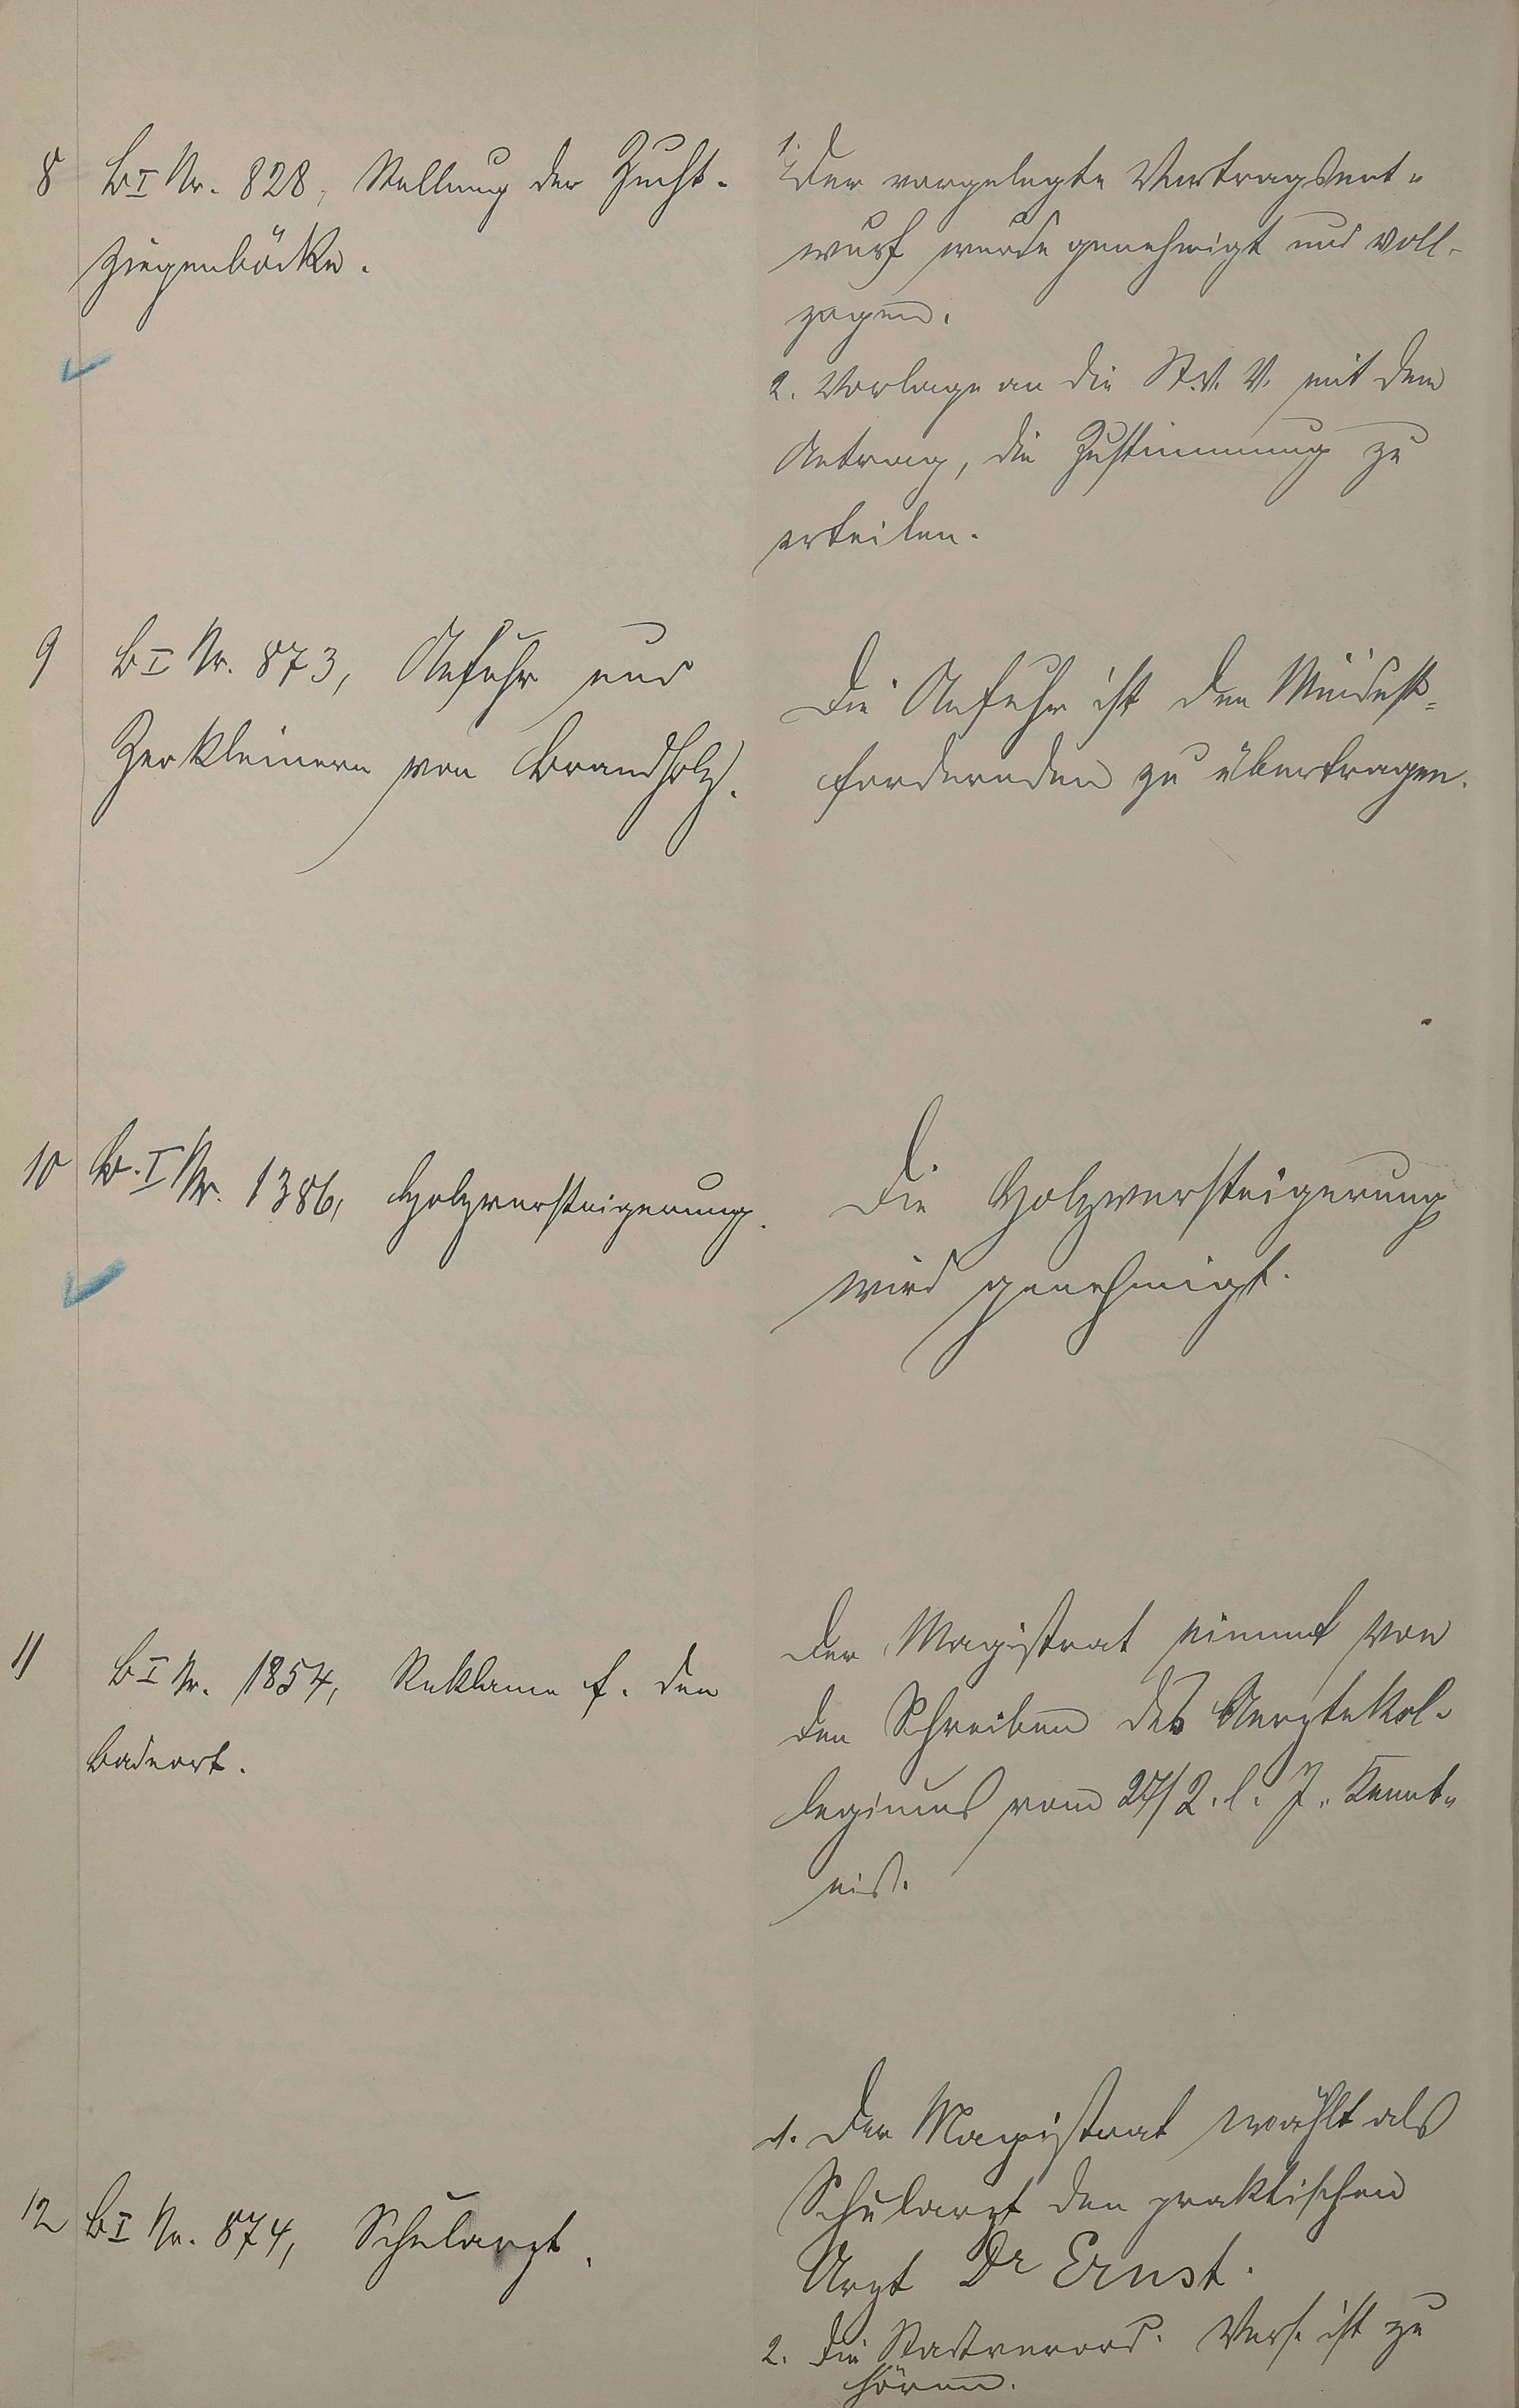 8 BI Nr. 828, Stellung der Zucht-
ziegenböcke.
1. Der vorgelegte Vertragsent-
wurf wurde genehmigt und voll-
zogen.
2. Vorlage an die St. V. V. mit dem
Antrag, die Zustimmung zu
erteilen.
9 BI Nr. 873, Anfuhr und
Zerkleinern von Brandholz.
Die Anfuhr ist dem Mindest-
fordernden zu übertragen.
10 B. I Nr. 1386, Holzversteigerung.
Die Holzversteigerung
wird genehmigt.
11 BI Nr. 1854, Reklame f. den
Badeort.
Der Magistrat nimmt von
dem Schreiben des Aerztekol-
legiums vom 27/2. l. J. Kennt-
nis.
12 BI Nr. 874, Schularzt.
1. Der Magistrat wählt als
Schularzt den praktischen
Arzt Dr Ernst.
2. Die Stadtverord. Vers. ist zu
hören.